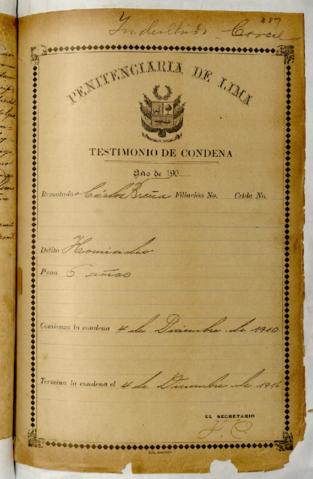 337
Indultado
PENITENCIARIA DE LIMA
TESTIMONIO DE CONDENA
Año de 190
Rematado Cárlos Filiación No. Celda No.
Delito Homicidio
Pena 6 años
Comienza la condena 4 de Diciembre de 1910
Termina la condena el 4 de Diciembre de 1916
EL SECRETARIO